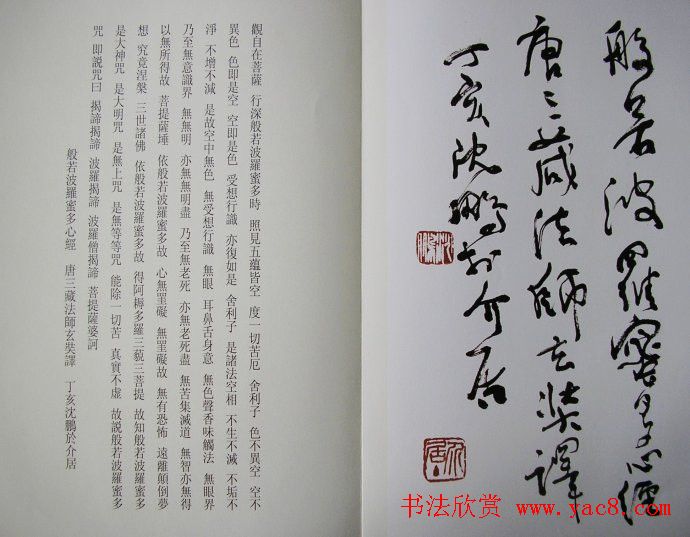 般若波羅蜜多心經
唐三藏法師玄奘譯
丁亥沈鵬於介居
介居
觀自在菩薩 行深般若波羅蜜多時 照見五蘊皆空 度一切苦厄 舍利子 色不異空 空不
異色 色即是空 空即是色 受想行識 亦復如是 舍利子 是諸法空相 不生不滅 不垢不
淨 不增不減 是故空中無色 無受想行識 無眼 耳鼻舌身意 無色聲香味觸法 無眼界
乃至無意識界 無無明 亦無無明盡 乃至無老死 亦無老死盡 無苦集滅道 無智亦無得
以無所得故 菩提薩埵 依般若波羅蜜多故 心無罣礙 無罣礙故 無有恐怖 遠離顛倒夢
想 究竟涅槃 三世諸佛 依般若波羅蜜多故 得阿耨多羅三藐三菩提 故知般若波羅蜜多
是大神咒 是大明咒 是無上咒 是無等等咒 能除一切苦 真實不虛 故説般若波羅蜜多
咒 即説咒曰 揭諦揭諦 波羅揭諦 波羅僧揭諦 菩提薩婆訶
般若波羅蜜多心經 唐三藏法師玄奘譯 丁亥沈鵬於介居
书法欣赏 www.yac8.com